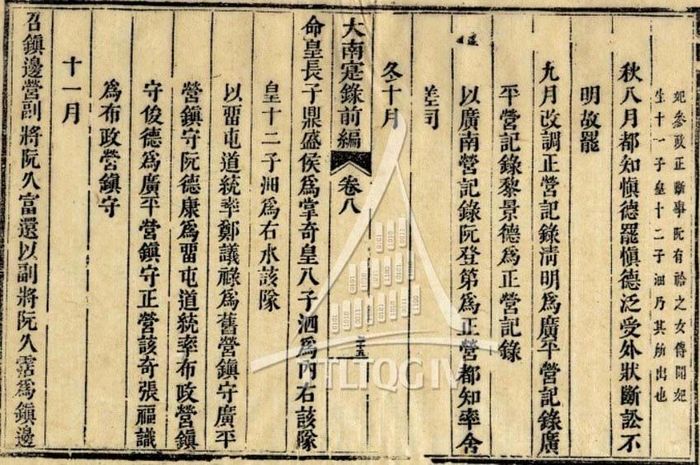 妃參政正斷事阮有祫之女傳聞妃
生十一子皇十二子沺乃其所出也
秋八月都知愼德罷愼德泛受外狀斷訟不
明故罷
九月改調正營記錄淸明爲廣平營記錄廣
平營記錄黎景德爲正營記錄
以廣南營記錄阮登第爲正營都知率舍
差司
冬十月
大南寔錄前編 卷八 二十五
命皇長子鼎盛侯爲掌奇皇八子泗爲內右該隊
皇十二子沺爲右水該隊
以畱屯道統率鄭議祿爲舊營鎮守廣平
營鎮守阮德康爲畱屯道統率布政營鎮
守俊德爲廣平營鎮守正營該奇張福識
爲布政營鎮守
十一月
召鎮邊營副將阮久富還以副將阮久霑爲鎮邊
TTLTQG IV